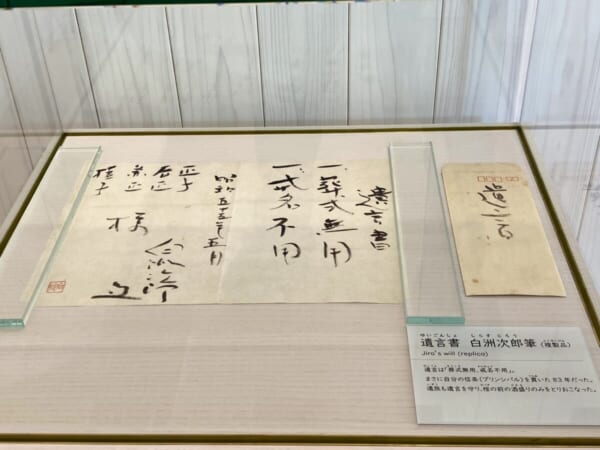 遺言書
一、葬式無用
一、戒名不用
昭和五十五年五月
正子
春正
兼正
桂子
様
白洲次郎
遺言書
ゆいごんしょ しらす じろう
遺言書 白洲次郎筆（複製品）
Jiro's will (replica)
遺言は「葬式無用、戒名不用」。
まさに自分の信条（プリンシパル）を貫いた83年だった。
遺族も遺言を守り、棺の前の酒盛りのみをとりおこなった。